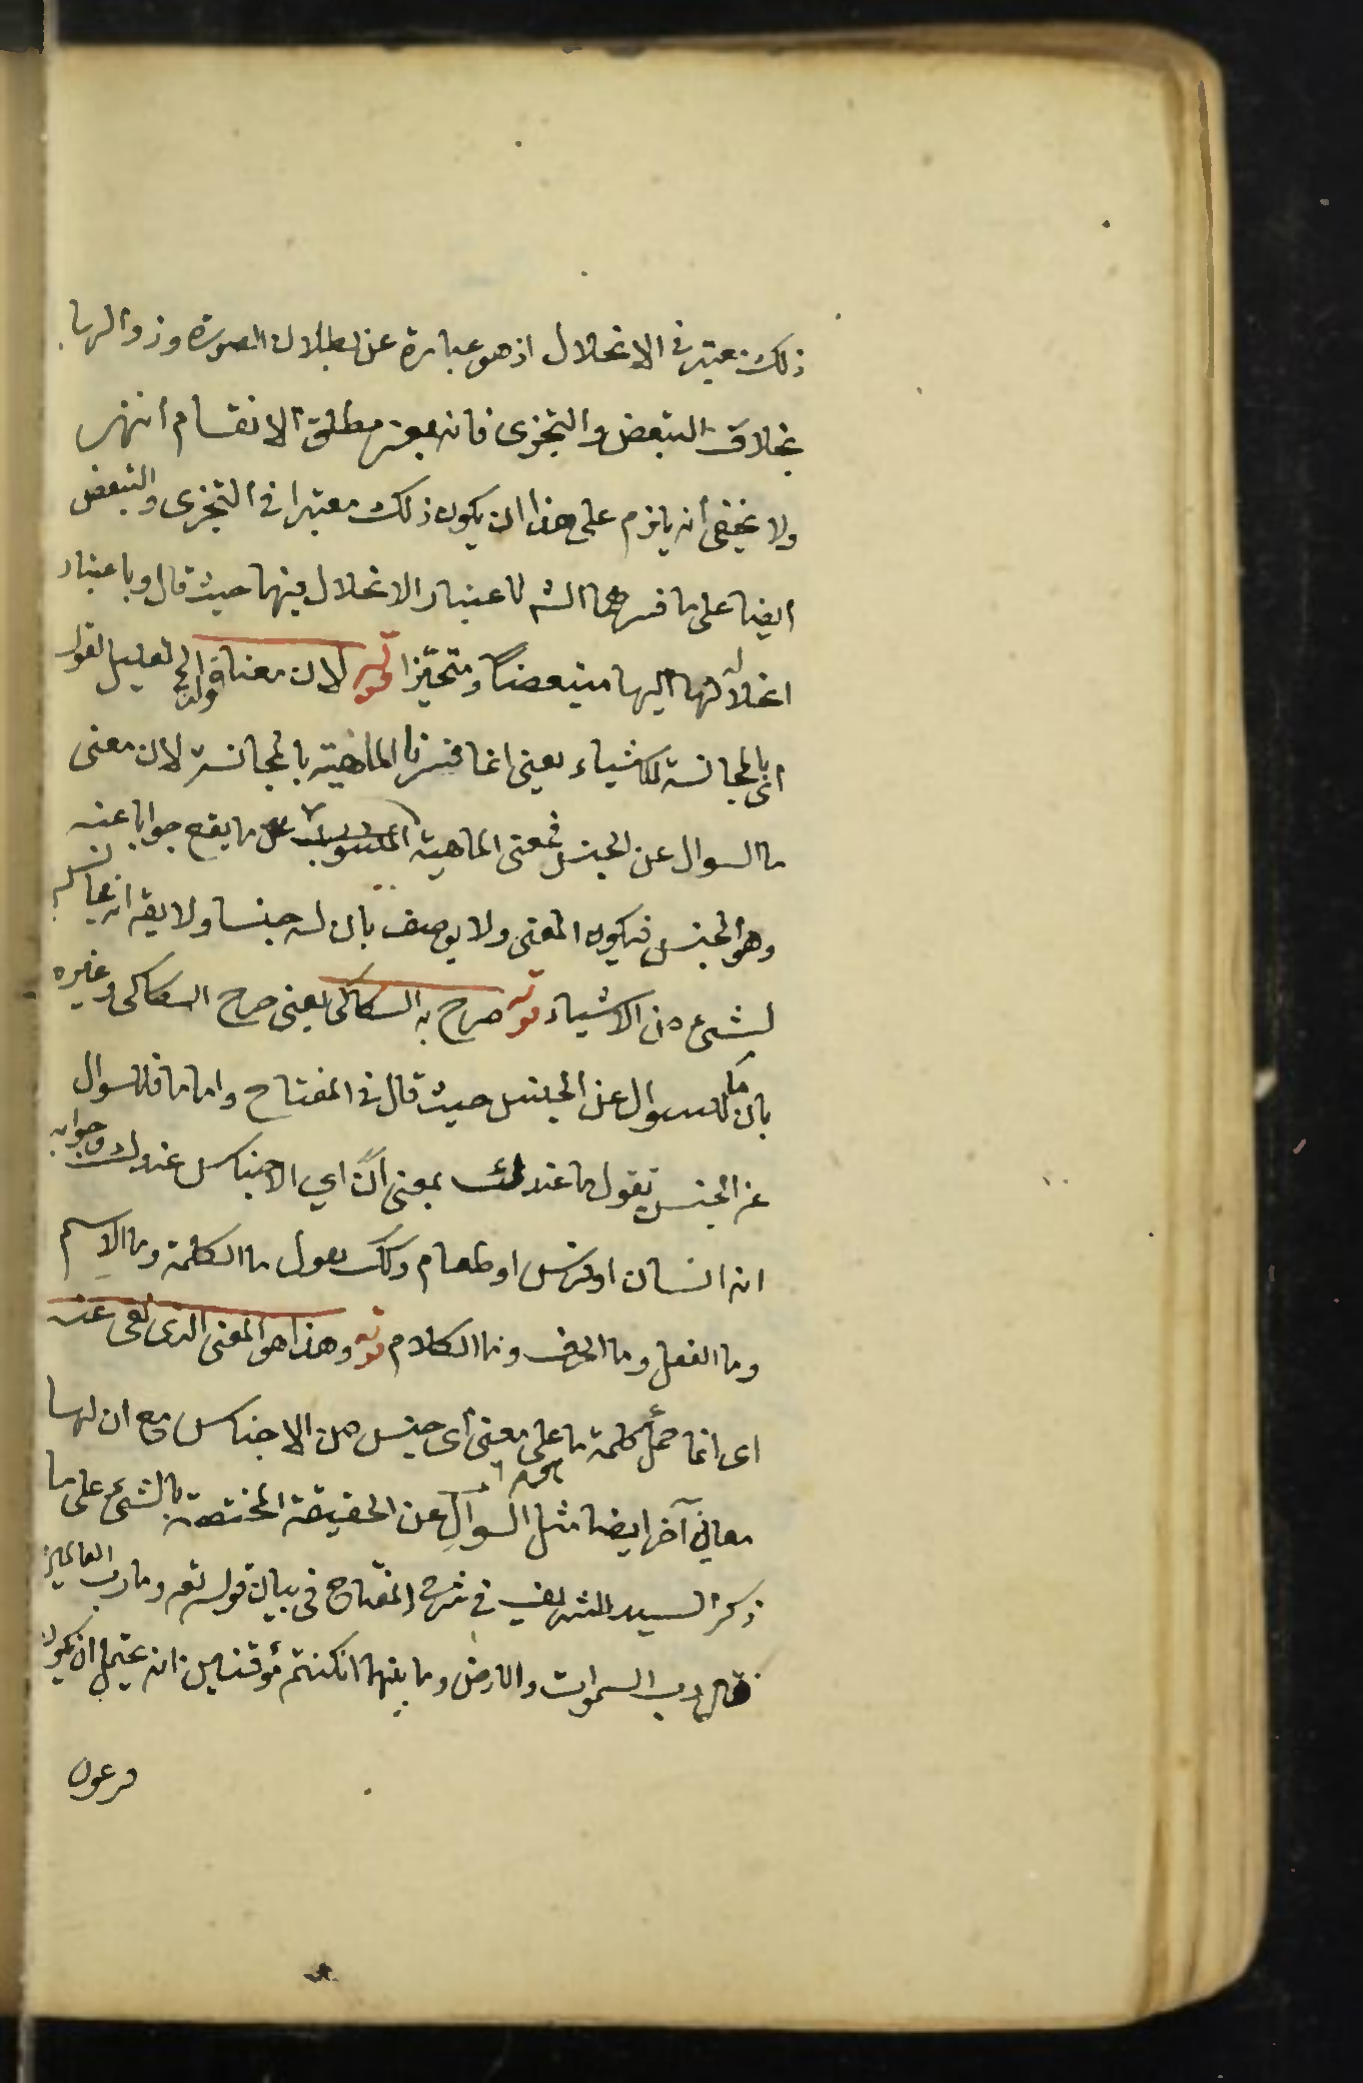 ذلك معتبر في الانحلال اذ هو عبارة عن بطلان الصورة وزوالها
بخلاف التبعض والتجزى فانه يعتبر مطلق الانقسام انتهى
ولا يخفى أنه يلزم على هذا ان يكون ذلك معتبرا في التجزى والتبعض
ايضا على ما فسرهما الش لاعتبار الانحلال فيهما حيث قال وباعتبار
انحلاله اليها متبعضا ومتجزا قوله لان معناه قولنا الخ تعليل لقوله
اى بالمجانسة للاشياء يعنى انما فسرنا الماهية بالمجانسة لان معنى
ما السوال عن الجنس فمعنى الماهية ما يقع جوابا عنه
وهو الجنس فيكون المعنى ولا يوصف بان له جنسا ولا يقه انه مجانس
لشئ من الاشياء قوله صرح به السكاكى يعنى صرح السكاكى وغيره
بان ما للسوال عن الجنس حيث قال في المفتاح واما ما فللسوال
عن الجنس تقول ما عندك بمعنى اى الاجناس عندك وجوابه
انه انسان او فرس او طعام وكك تقول ما الكلمة وما الاسم
وما الفعل وما الحرف وما الكلام قوله وهذا هو المعنى الذى نفى عنه
اى انما حمل كلمة ما على معنى أى جنس من الاجناس مع ان لها
معاني آخر ايضا مثل السوال عن الحقيقة المختصة بالشئ على ما
ذكر السيد الشريف في شرح المفتاح في بيان قوله تعه وما رب العالمين
قال رب السموات والارض وما بينهما ان كنتم مؤقنين انه يحتمل ان يكون
فرعون